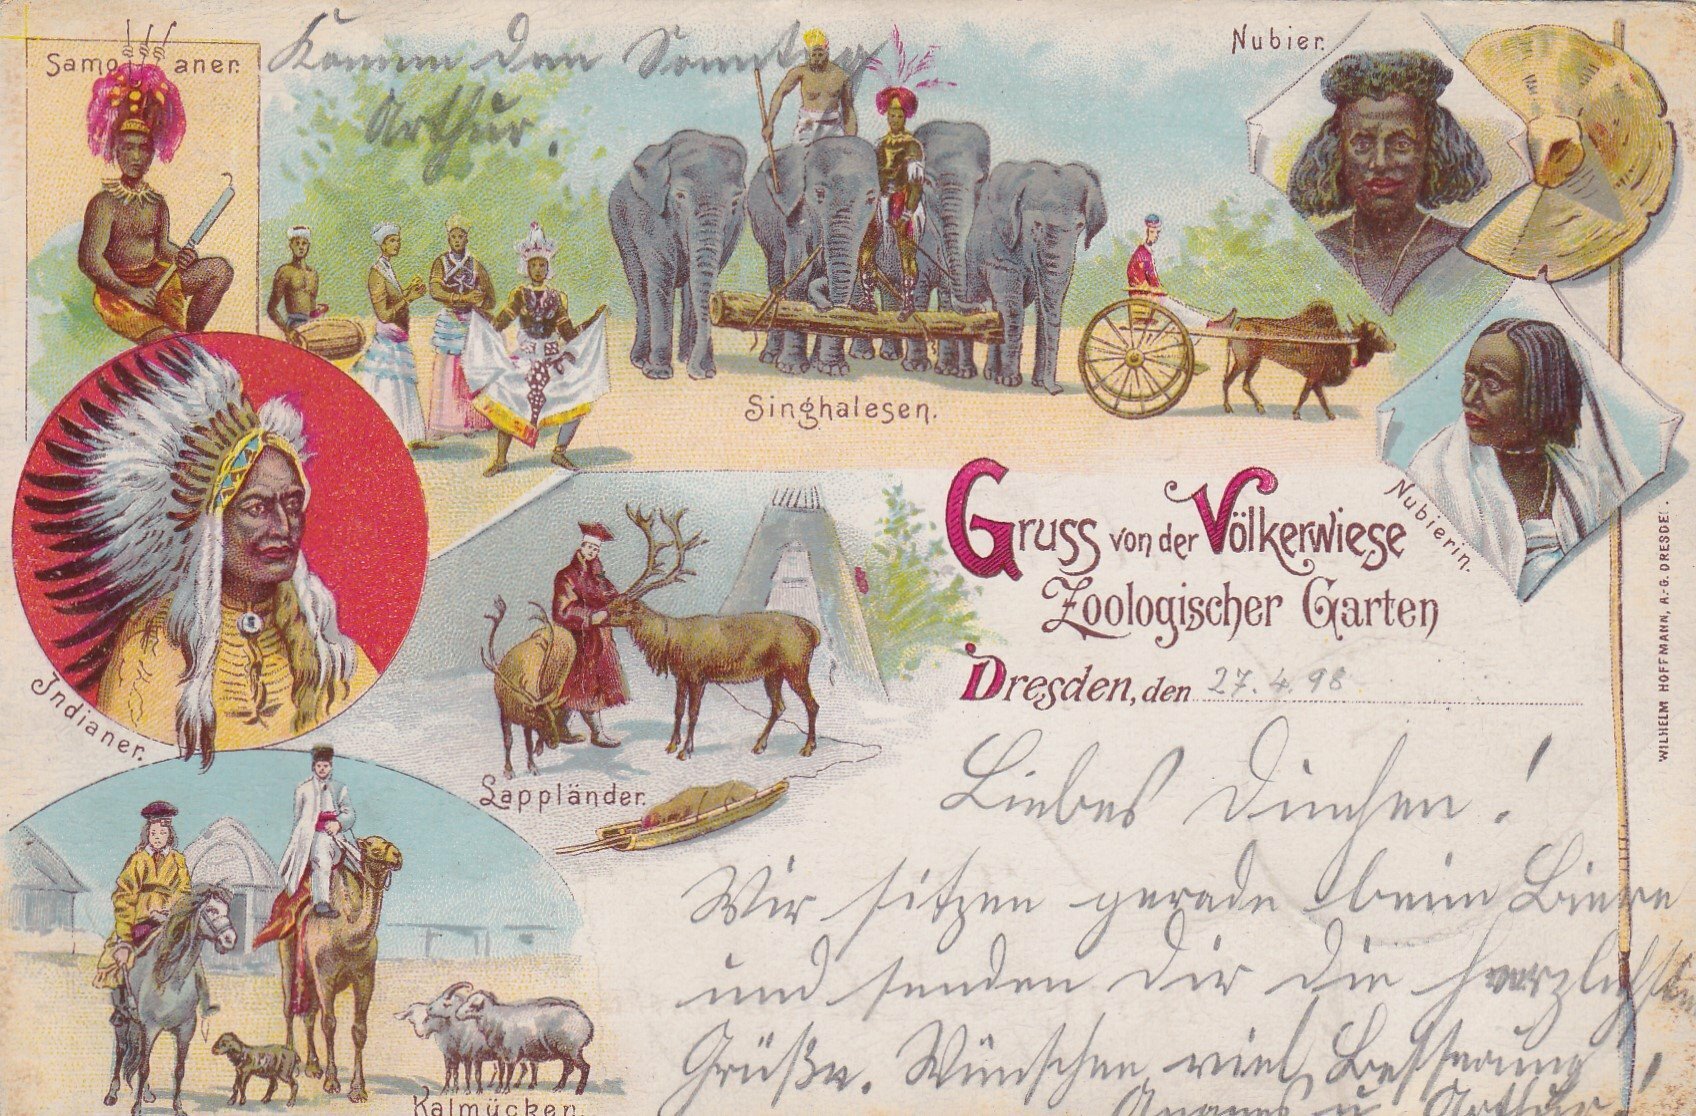 Samoaner.
Komm den Sonntag
Arthur.
Nubier.
Singhalesen.
Nubierin.
Indianer.
Gruss von der Völkerwiese
Zoologischer Garten
Dresden, den 27.4.98
Lappländer.
Kalmücken.
WILHELM HOFFMANN, A.-G. DRESDEN.
Liebes
Wir sitzen gerade beim Biere
und senden Dir die herzlichsten
Grüße. Wünschen viel Besserung!
u. Arthur